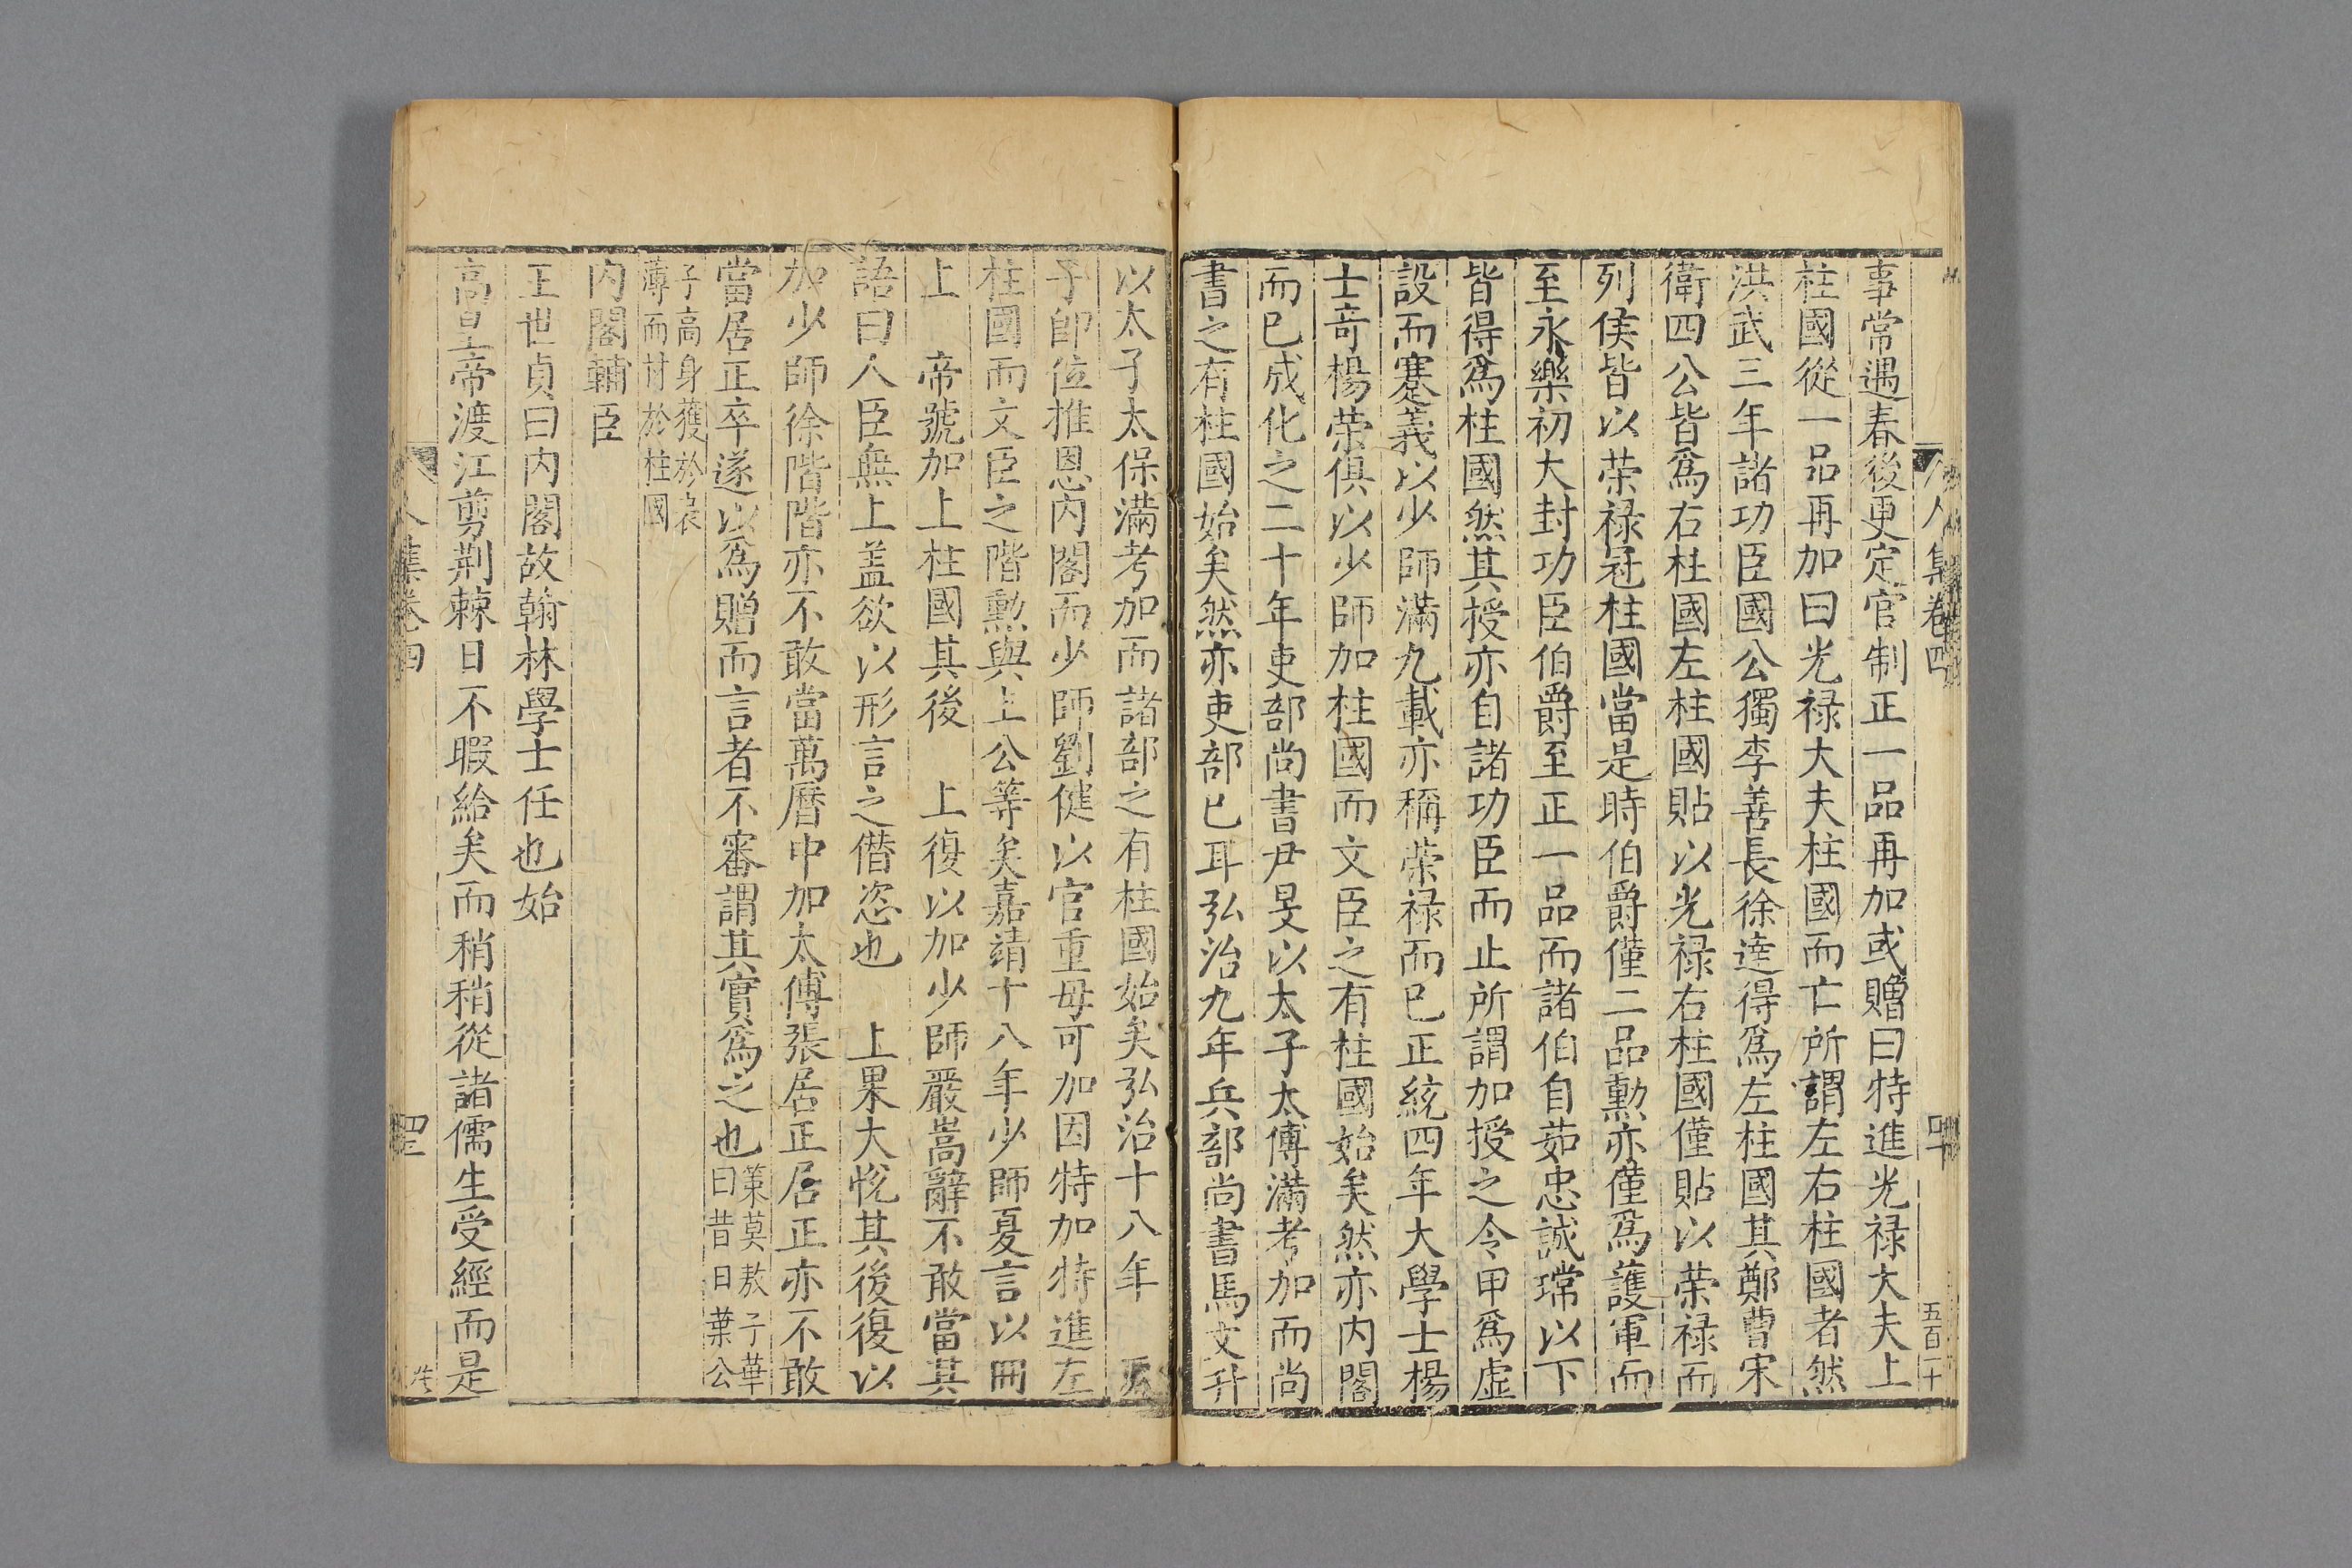 人集卷四
四十
五百二十
事常遇春後更定官制正一品再加或贈曰特進光祿大夫上
柱國從一品再加曰光祿大夫柱國而亡所謂左右柱國者然
洪武三年諸功臣國公獨李善長徐達得爲左柱國其鄭曹宋
衛四公皆爲右柱國左柱國貼以光祿右柱國僅貼以荣祿而
列侯皆以荣祿冠柱國當是時伯爵僅二品勳亦僅爲護軍而
至永樂初大封功臣伯爵至正一品而諸伯自茹忠誠瑺以下
皆得爲柱國然其授亦自諸功臣而止所謂加授之令甲爲虛
設而蹇義以少師滿九載亦稱荣祿而已正統四年大學士楊
士竒楊荣俱以少師加柱國而文臣之有柱國始矣然亦内閣
而已成化之二十年吏部尚書尹旻以太子太傅滿考加而尚
書之有柱國始矣然亦吏部已耳弘治九年兵部尚書馬文升
以太子太保滿考加而諸部之有柱國始矣弘治十八年
子即位推恩内閣而少師劉健以官重毋可加因特加特進左
柱國而文臣之階勳與上公等矣嘉靖十八年少師夏言以冊
上 帝號加上柱國其後 上復以加少師嚴嵩辭不敢當其
語曰人臣無上盖欲以形言之僣恣也 上果大悅其後復以
加少師徐階階亦不敢當萬曆中加太傅張居正居正亦不敢
當居正卒遂以爲贈而言者不審謂其實爲之也策莫敖子華
曰昔日葉公
子高身獲於表
薄而財於柱國
内閣輔臣
王世貞曰内閣故翰林學士任也始
高皇帝渡江剪荆棘日不暇給矣而稍稍從諸儒生受經而是
人集卷四